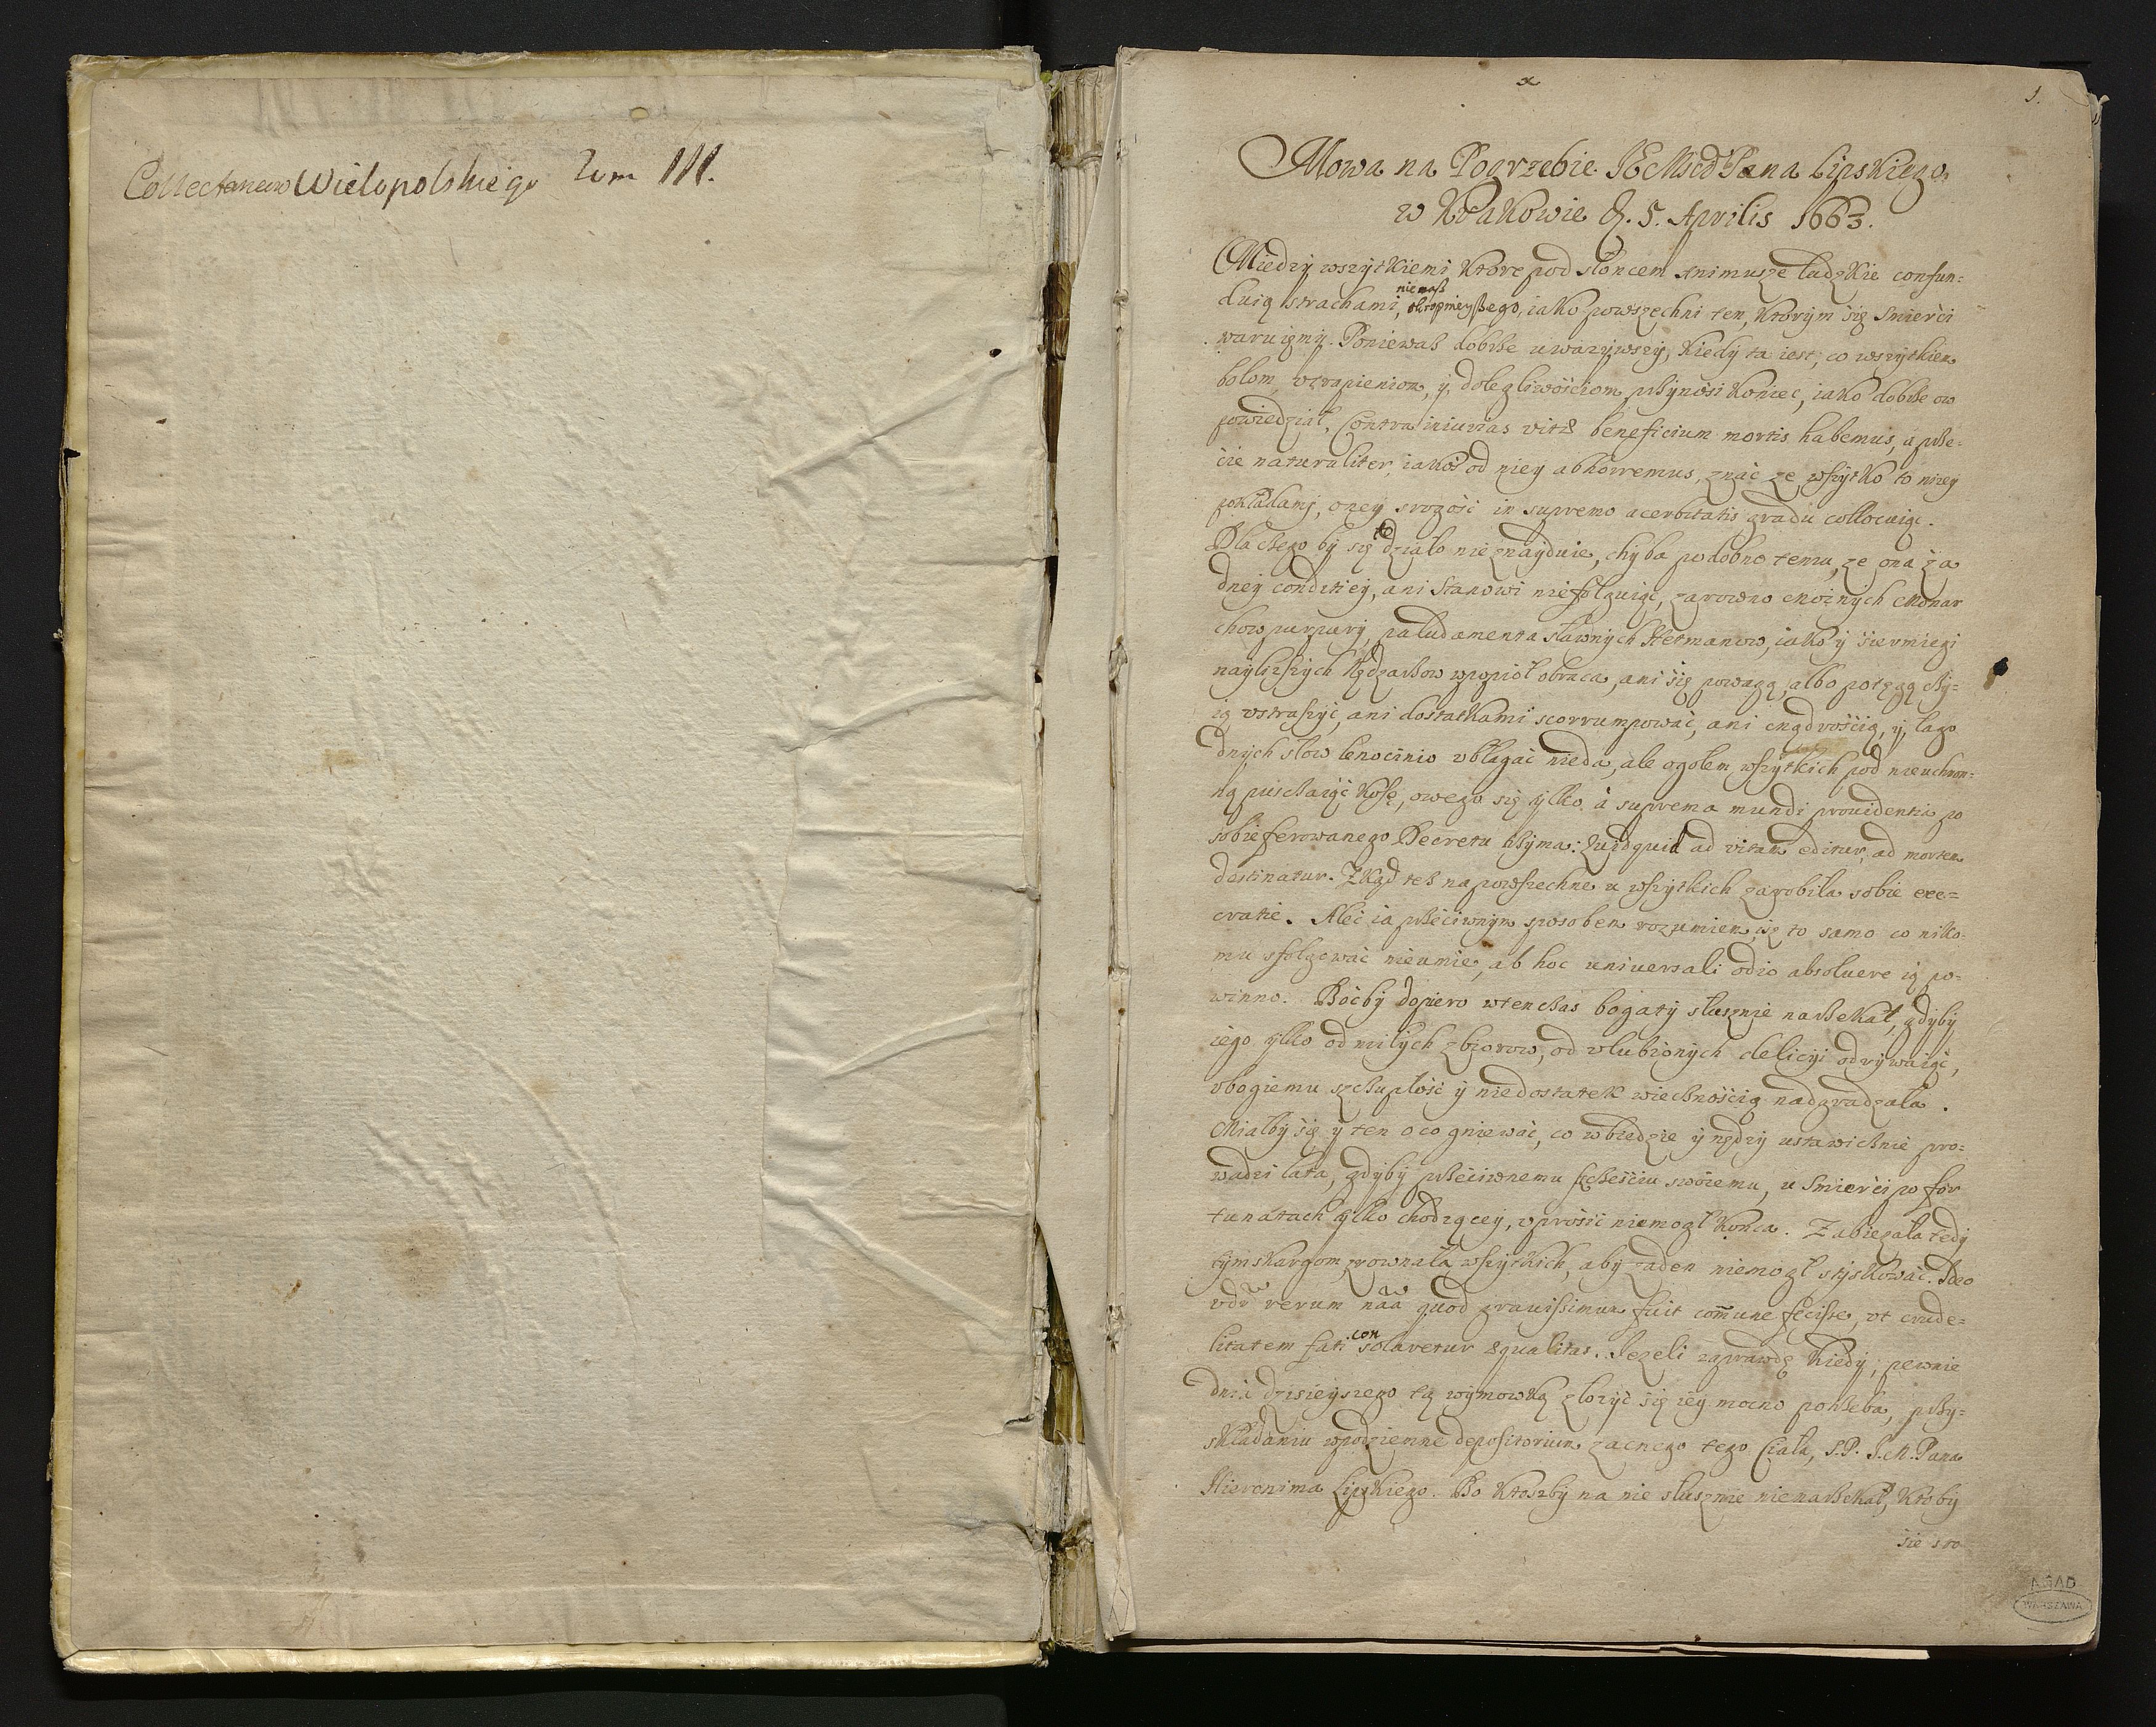 Collectaneow Wielopolskiego Tom III.
1.
Mowa na Pogrzebie JEMscO Pana Lipskiego
w Krakowie d. 5. Aprilis 1663.
Między wszytkiemi ktore pod słoncem animusze ludzkie confun-
duią strachami, niemasz okropnieyszego, iako powszechni ten, ktorym się smierci
waruiemy. Poniewasz dobrze uwazywszy, kiedy ta iest, co wszytkiem
bolom, vtrapieniom, y dolegliwosciom przynosi koniec, iako dobrze ow
powiedział, Contra iniurias vitæ beneficium mortis habemus, a prze-
cie naturaliter iakos od niey abhorremus, znac ze wszytko to nizey
pokładamy, oney srogosc in supremo acerbitatis gradu collocuiąc.
Dla czego by się to działo nieznayduie, chyba podobno temu, ze ona za
dney conditiey, ani stanowi niefolguiąc, zarowno moznych Monar
chow purpury, paludamenta sławnych Hetmanow, iako y siermięgi
naylizszych Nędzarzow wpopioł obraca, ani się powagą, albo potęgą czy-
ią vstraszyć, ani dostatkami scorrumpować, ani mądroscią, y łago
dnych słow lenocinio vbłagać nieda, ale ogołem wszytkich pod nieuchron-
ną puszczaiąc kosę, owego się tylko à suprema mundi prouidentia po
sobie ferowanego Decretu trzyma: Quidquid ad vitam editur, ad mortem
destinatur. Zkąd tesz na powszechne u wszytkich zarobiła sobie exe-
cratie. Aleć ia przeciwnym sposobem rozumiem, isz to samo co niko-
mu sfolgować nieumie, ab hoc uniuersali odio absoluere ią po-
winno. Bocby dopiero wtenczas bogaty słusznie narzekał, gdyby
iego tylko od miłych zbiorow, od vlubionych delicyi odrywaiąc,
vbogiemu szczupłość y niedostatek wiecznoscią nadgradzała.
Miałby się y ten o co gniewać, co wbiedzie y nędzy ustawicznie pro-
wadzi lata, gdyby przeciwnemu szczesciu swoiemu, u Smierci po for
tunatach tylko chodzącey, vprosić niemogł konca. Zabiegała tedy
tym skargom, zrownała wszytkich, aby zaden niemogł styskować. Ideo
vdr rerum nãa quod grauissimum fuit com̃une fecisse, vt crude-
litatem fati consolaretur æqualitas. Iezeli zaprawdę kiedy, pewnie
dnia dzisieyszego tą wymowką złozyć się iey mocno potrzeba, przy
składaniu wpodziemne depositorium zacnego tego Ciała, S.P. J.M. Pana
Hieronima Lipskiego. Bo ktoszby na nie słusznie nienarzekał, ktoby
sie sro
AGAD
WARSZAWA